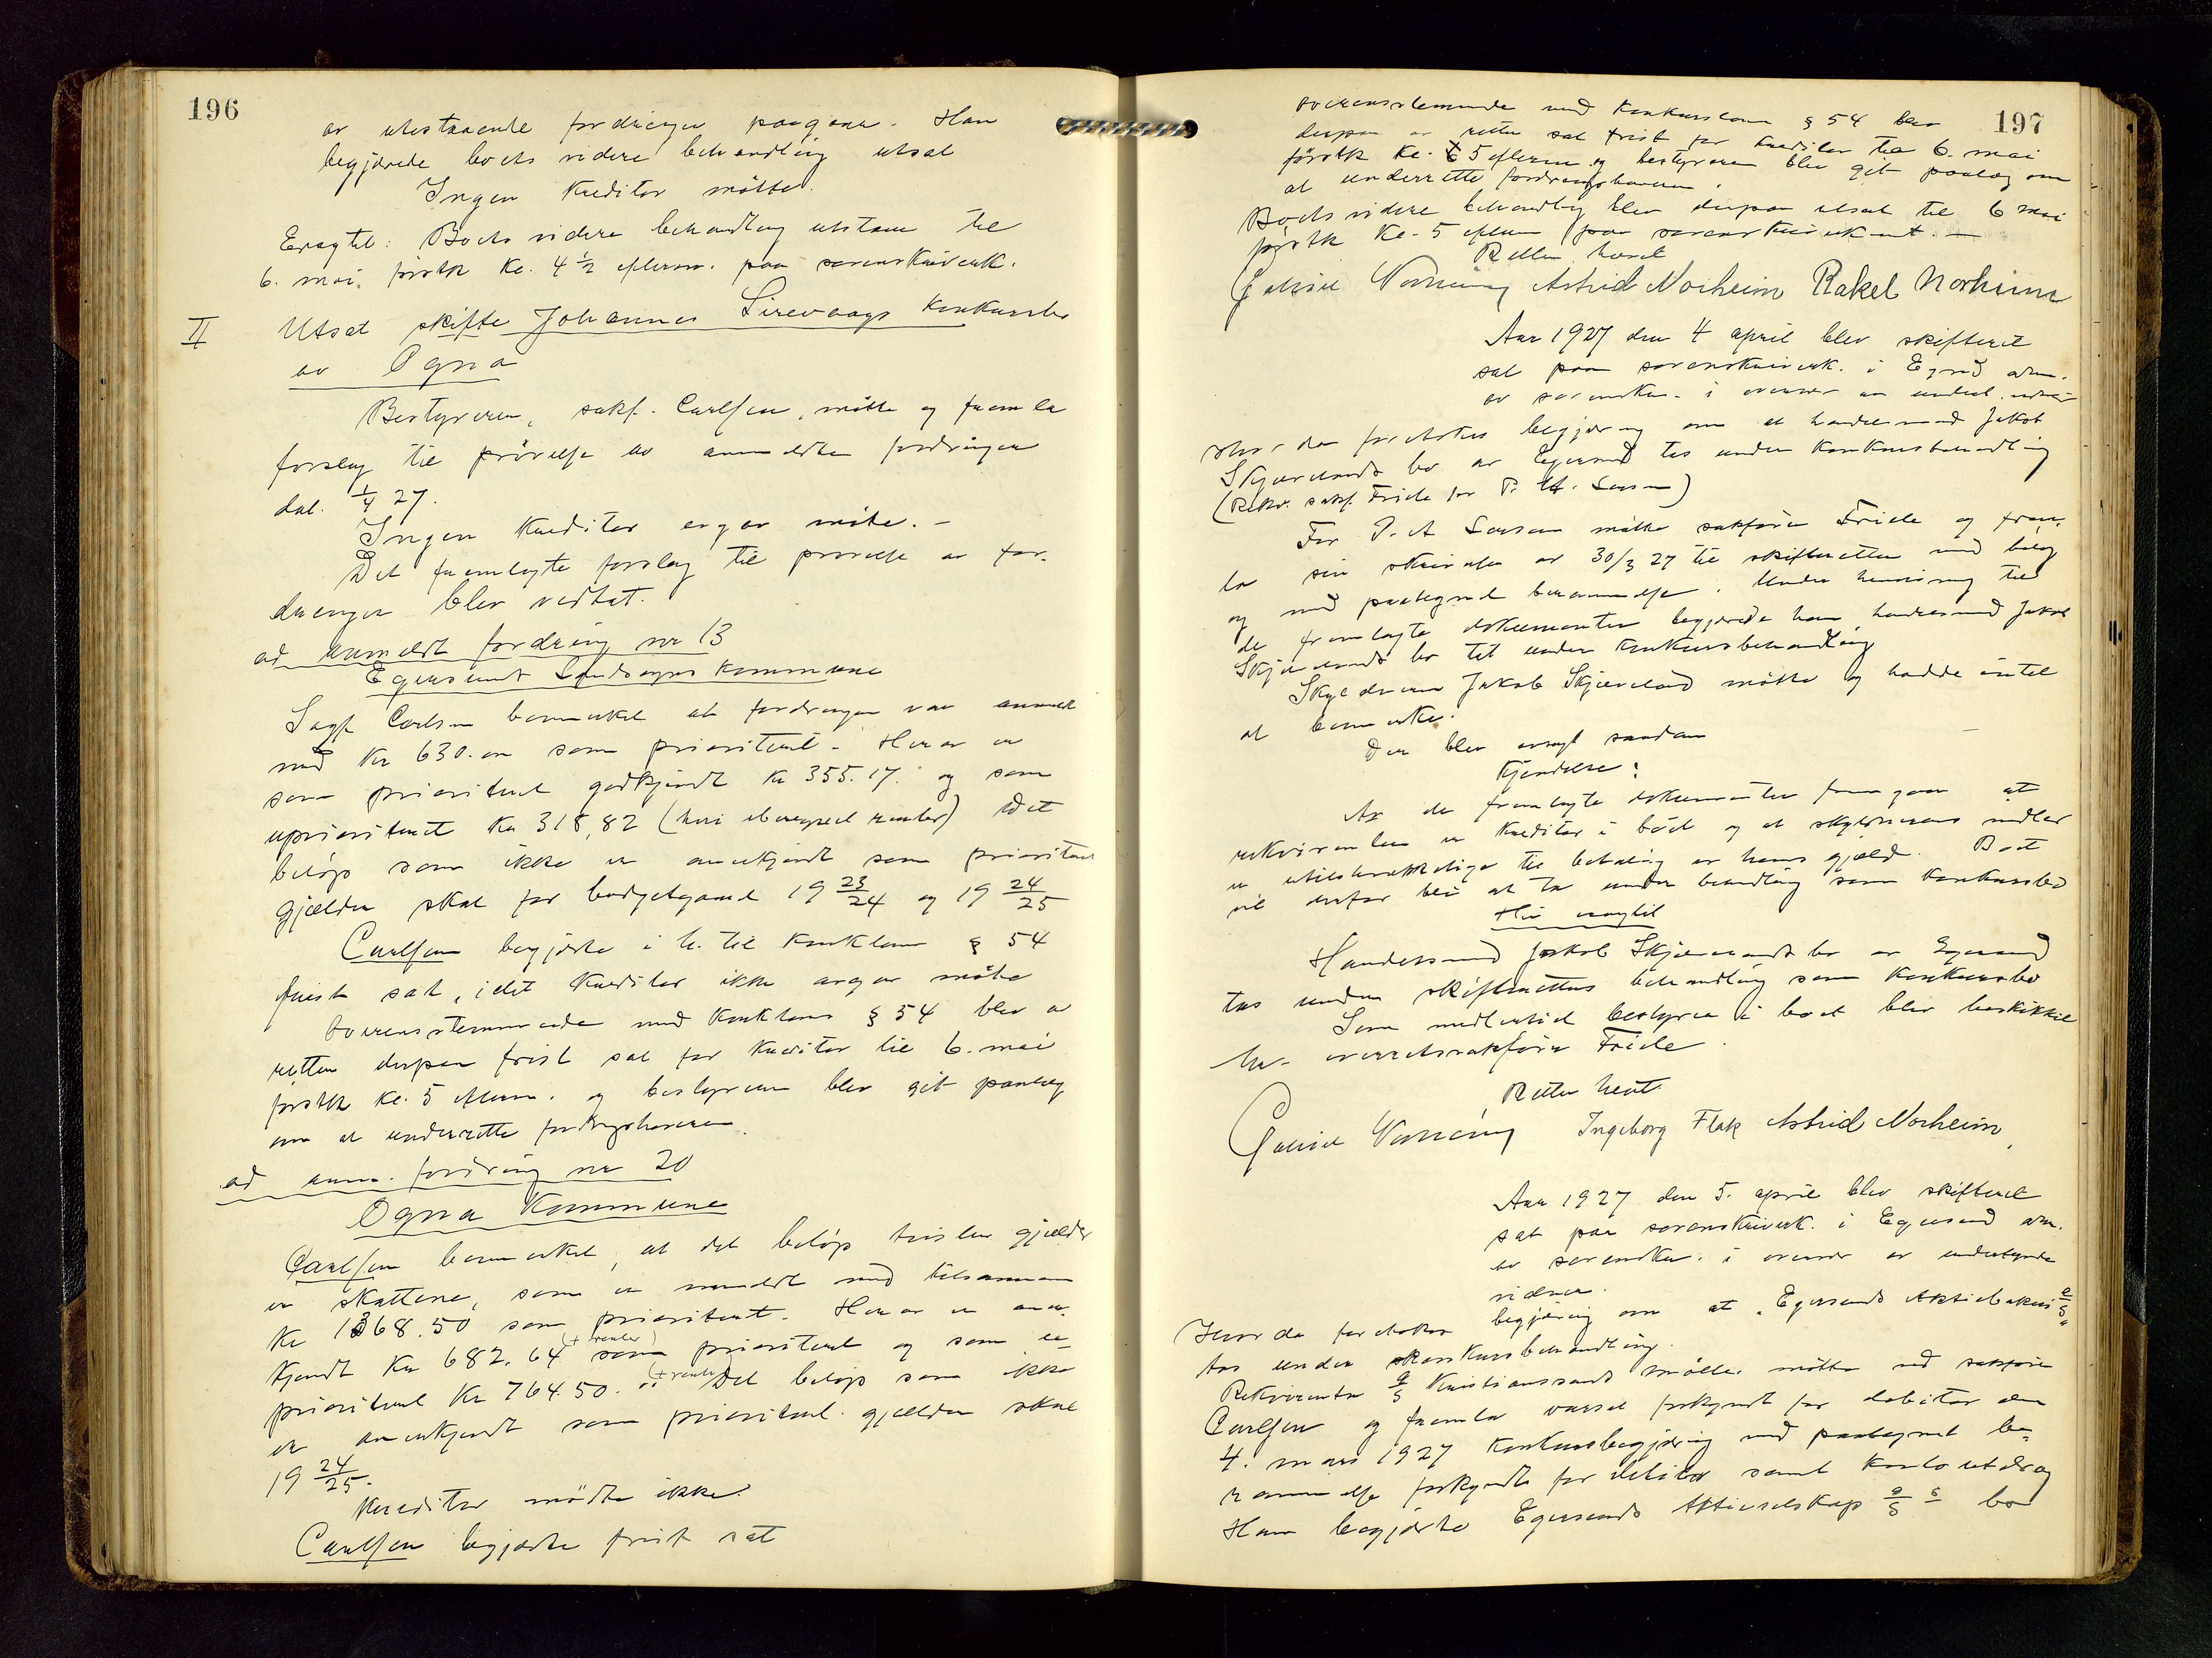 196
av utestaaende fordringer paagaar. Han
begjærede boets videre behandling utsat
Ingen kreditor møtte.
Eragtet: Boets videre behandling utstaar til
6. mai førstk kl. 4 1/2 efterm. paa sorenskriverk.
II Utsat skifte Johannes Sirevaags konkursbo
av Ogna
Bestyreren, sakf. Carlsen, møtte og fremla
forslag til prøvelse av anmeldte fordringer
dat. 1/4 27.
Ingen kreditor avgav møte. -
Det fremlagte forslag til prøvelse av for-
dringer blev vedtat.
ad anmeldt fordring nr 13
Egersund Landsogns kommune
Sagf Carlsen bemerket at fordringen var anmeldt
med kr 630.  som prioritert. Herav er
som prioritert godkjendt kr 355.17. og som
uprioritert kr 318,82 (heri iberegnet renter) Det
beløp som ikke er anerkjendt som prioritert
gjælder skat for budgetaaret 19 23/24 og 19 24/25
Carlsen begjærte i h. til konkloven § 54
frist sat, idet kreditor ikke avgav møte
Overensstemmende med konklovens § 54 blev av
retten derpaa frist sat for kreditor til 6. mai
førstk kl. 5 efterm. og bestyreren blev git paalæg
om at underrette fordringshaveren.
ad anm. fordring nr 20
Ogna kommune
Carlsen bemerket, at det beløp tvisten gjælder
er skattene, som er anmeldt med tilsammen
kr 1368.50 som prioritert. Herav er aner-
kjendt kr 682,64 (+ renter) som prioritert og som u-
prioritert kr 764.50. (+ renter) Det beløp som ikke
er anerkjendt som prioritert gjælder skat
19 24/25.
Kreditor mødte ikke.
Carlsen begjærte frist sat
197
overensstemmende med konkursloven § 54 blev
derpaa av retten sat frist for kreditor til 6. mai
førstk kl. 5 efterm og bestyreren blev git paalæg om
at underrette fordringshaveren.
Boets videre behandling blev derpaa utsat til 6 mai
førstk kl. 5 efterm paa sorenskriverkont. -
Retten hævet
Astrid Norheim Rakel Norheim
Aar 1927 den 4 april blev skifteret
sat paa sorenskriverk. i Egersd adm.
av sorenskr. i overvær av undert. vidner
Hvor da foretokes begjæring om at handelsmand Jakob
Skjævelands bo av Egersund tas under konkursbehandling
(Rekv. sakf. Friele for P. A. Larsen)
For P. A Larsen møtte sakfører Friele og frem-
la sin skrivelse av 30/3 27 til skifteretten med bilag
og med paategnet berammelse. Under henvisning til
de fremlagte dokumenter begjærede han handelsmand Jakob
Skjævelands bo tat under konkursbehandling
Skyldneren Jakob Skjæveland møtte og hadde intet
at bemerke.
Der blev avsagt saadan
Kjendelse:
Av de fremlagte dokumenter fremgaar at
rekvirenten er kreditor i boet og at skyldnerens midler
er utilstrækkelige til betaling av hans gjæld. Boet
vil derfor bli at ta under behandling som konkursbo
Thi eragtet
Handelsmand Jakob Skjævelands bo av Egersund
tas under skifterettens behandling som konkursbo
Som midlertidig bestyrer i boet blev beskikket
hr. overretssakfører Friele.
Retten hævet.
Ingeborg Flak Astrid Norheim
Aar 1927 den 5. april blev skifteret
sat paa sorenskriverk. i Egersund adm.
av sorenskr. i overvær av undertegnede
vidner.
Hvor da foretokes begjæring om at "Egersunds Aktiebakeri A/S"
tas under konkursbehandling.
Rekvirenten A/S Kristianssands møller møtte ved sakfører
Carlsen og fremla varsel forkyndt for debitor den
4. mars 1927 konkursbegjæring med paategnet be-
rammelse forkyndt for debitor samt kontoutdrag
Han begjærte Egersunds Aktieselskap A/S s bo